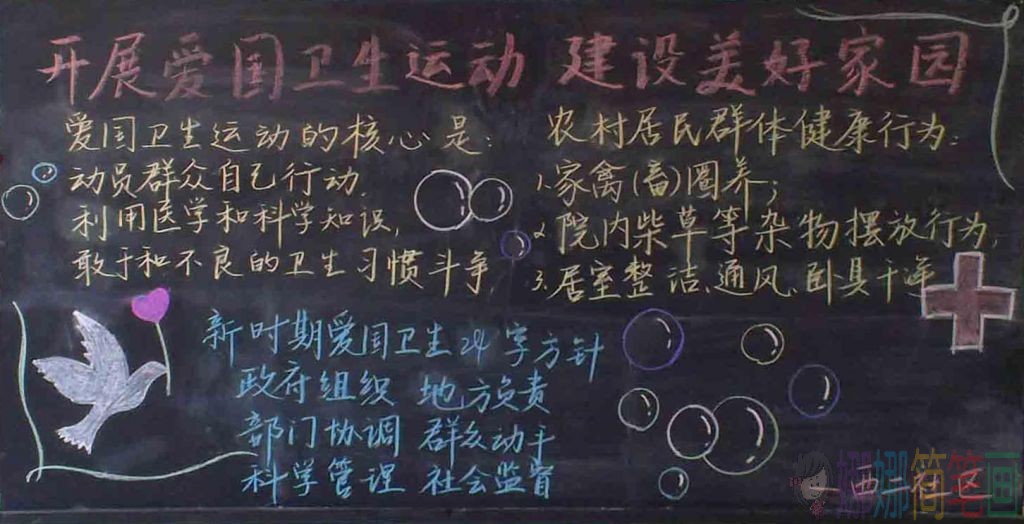 开展爱国卫生运动 建设美好家园
爱国卫生运动的核心是:
动员群众自己行动,
利用医学和科学知识,
敢于和不良的卫生习惯斗争
农村居民群体健康行为:
1、家禽(畜)圈养;
2、院内柴草等杂物摆放行为,
3、居室整洁、通风、卧具干净
新时期爱国卫生24字方针
政府组织 地方负责
部门协调 群众动手
科学管理 社会监督
西二社区
娜娜简笔画